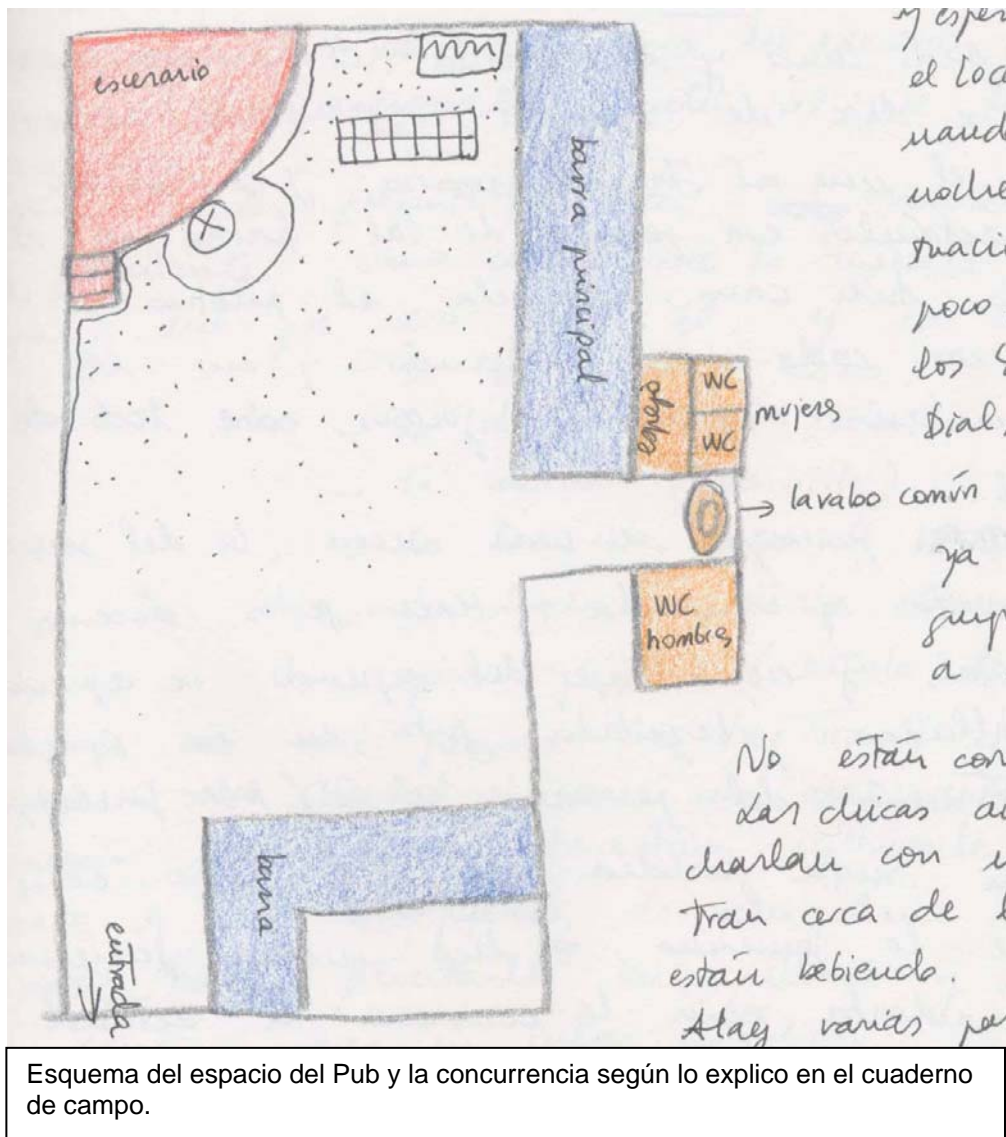 escenario
barra principal
WC
WC
mujeres
lavabo común
WC
hombres
barra
entrada
y esper
el loca
noche
poco
los
Dial
ya
grup
a
No están con
Las chicas a
charlan con
tran cerca de l
están bebiendo.
Hay varias pe
Esquema del espacio del Pub y la concurrencia según lo explico en el cuaderno
de campo.